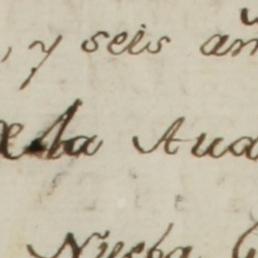 , y seis añ
de la Aud
Nueba